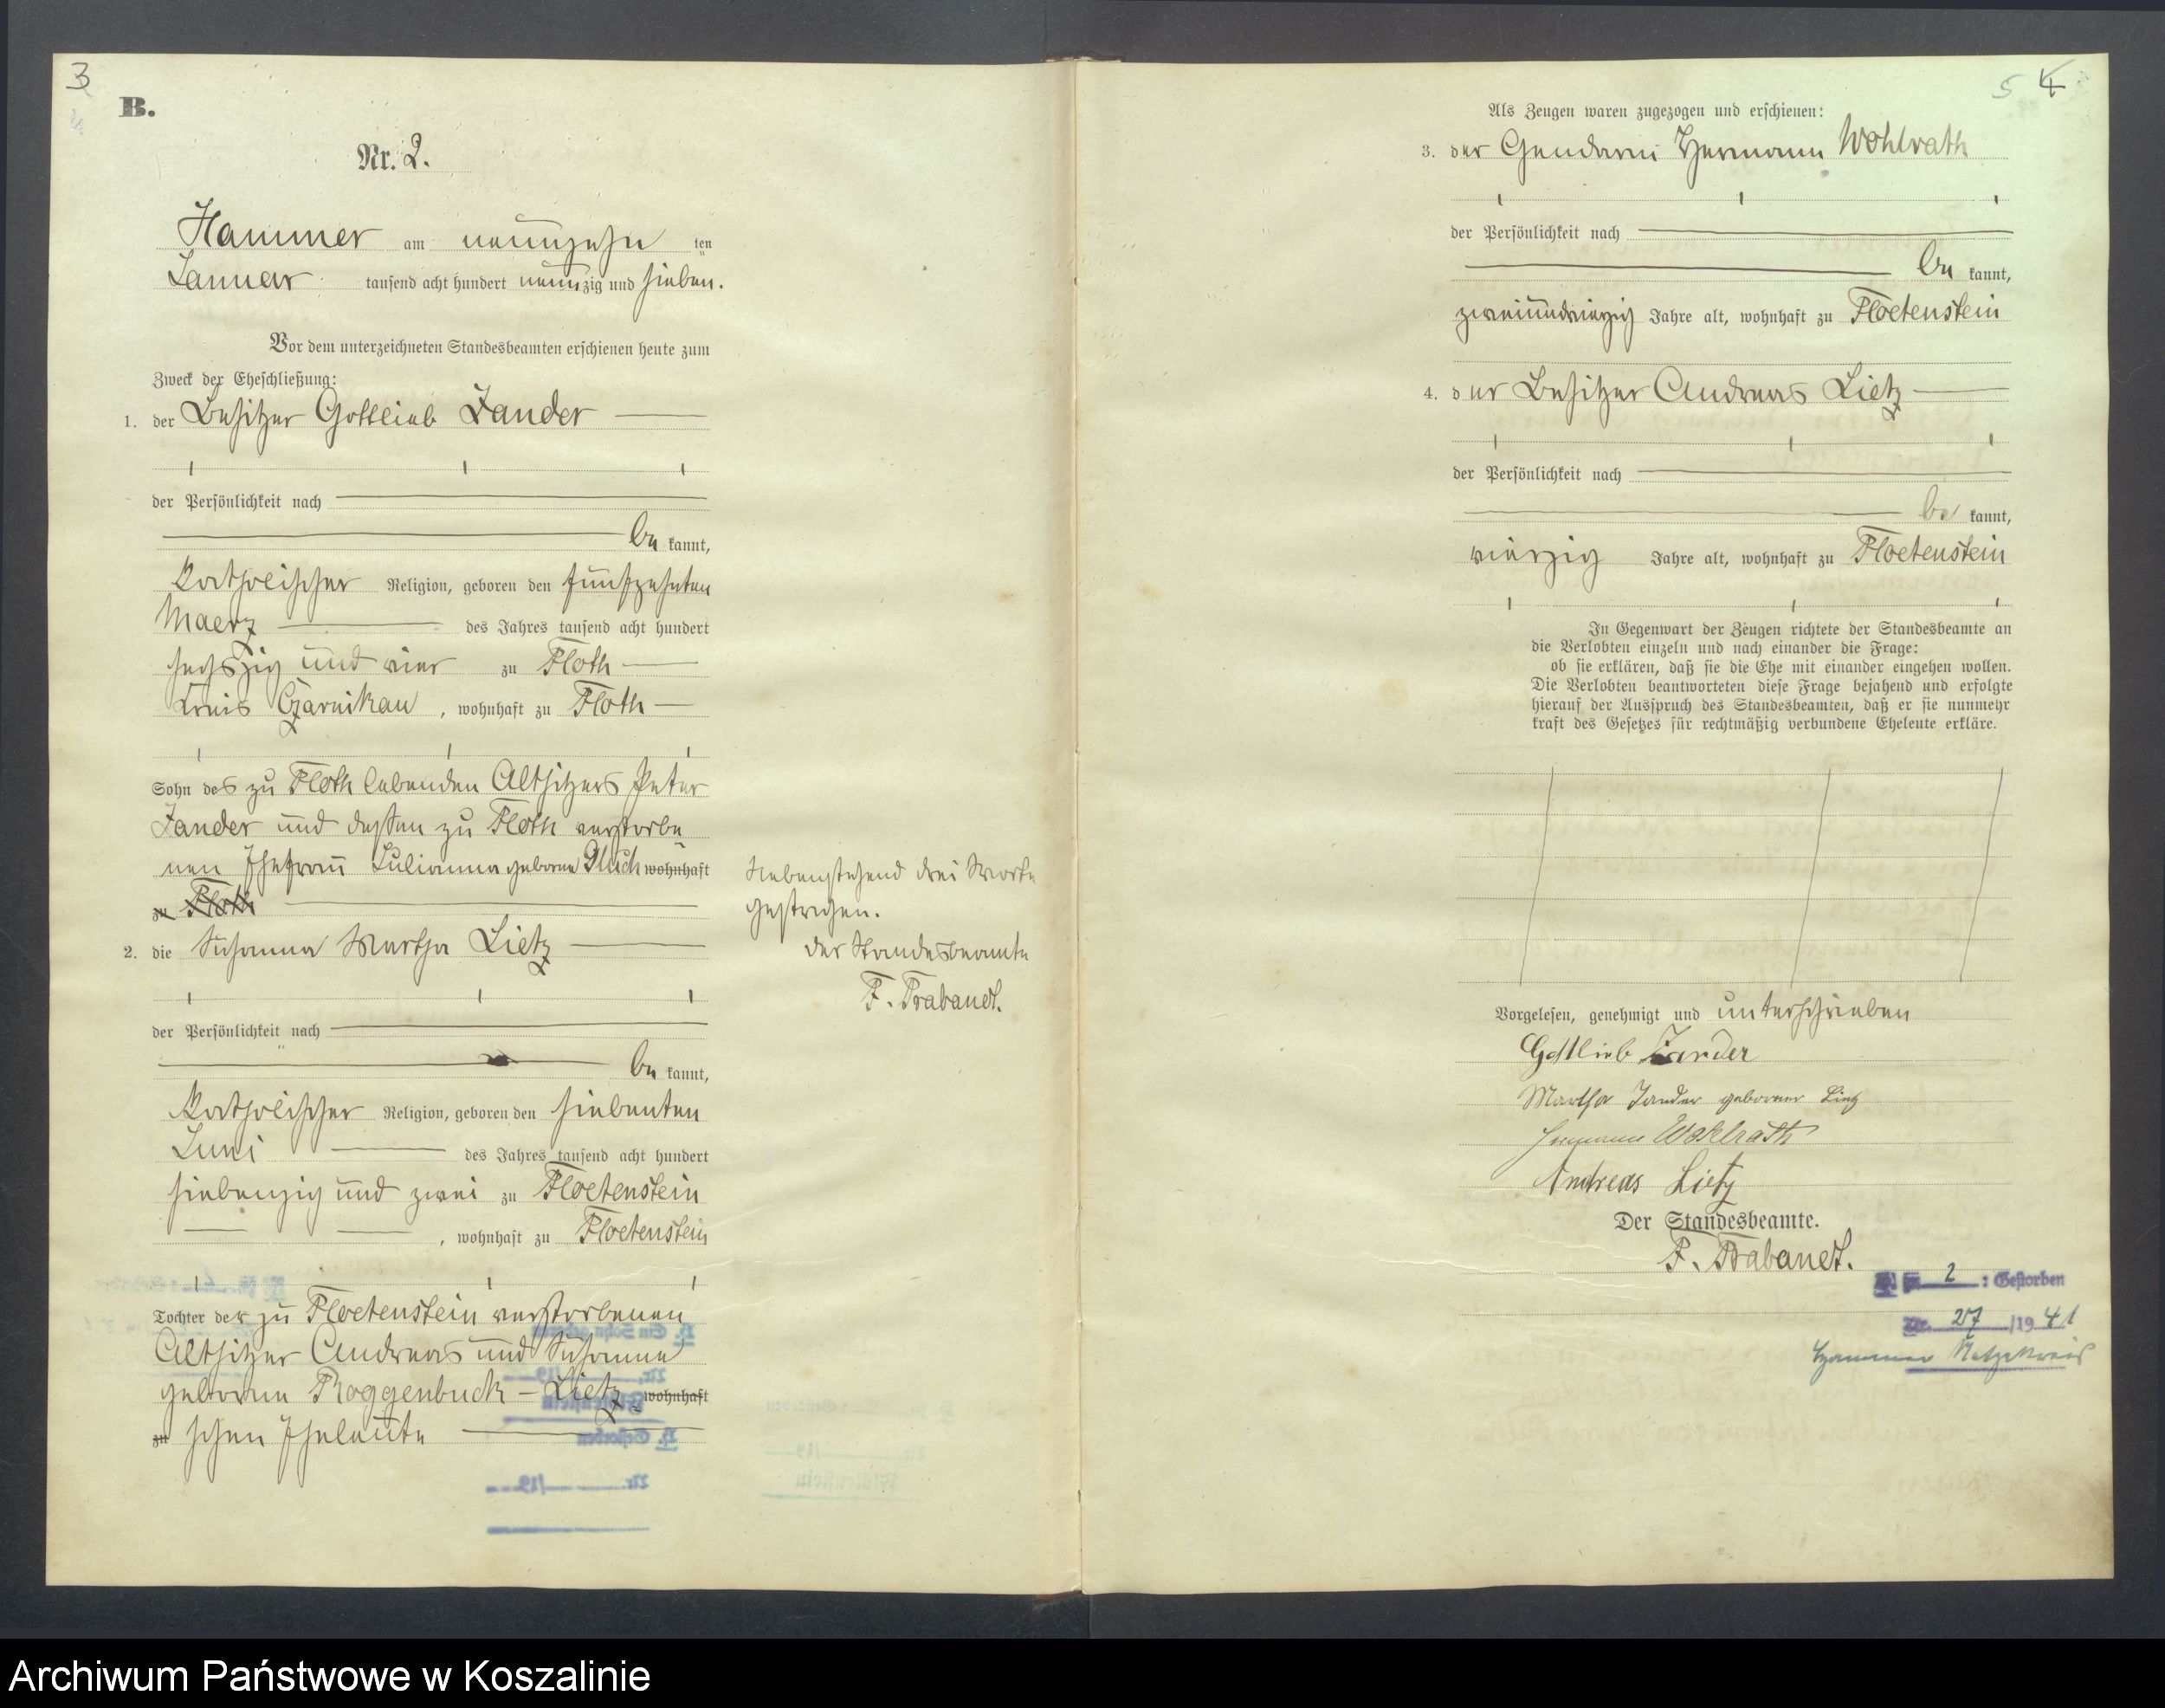 3
B.
Nr. 2.
Hammer am neunzehn ten
Januar tausend acht hundert neunzig und sieben.
Vor dem unterzeichneten Standesbeamten erschienen heute zum
Zweck der Eheschließung:
1. der Besitzer Gottlieb Zander
der Persönlichkeit nach
be kannt,
katholischer Religion, geboren den fünfzehnten
Maerz des Jahres tausend acht hundert
sechszig und vier zu Floth
Kreis Czarnikau, wohnhaft zu Floth
Sohn des zu Floth lebenden Altsitzers Peter
Zander und dessen zu Floth verstorbe
nen Ehefrau Julianna geborne Much wohnhaft
zu Floth
2. die Susanna Martha Lietz
der Persönlichkeit nach
be kannt,
katholischer Religion, geboren den siebenten
Juni des Jahres tausend acht hundert
siebenzig und zwei zu Floetenstein
, wohnhaft zu Floetenstein
Tochter der zu Floetenstein verstorbenen
Altsitzer Andreas und Susanna
geborne Roggenbuck - Lietz wohnhaft
zu schen Eheleute
Nebenstehend drei Worte
gestrichen.
Der Standesbeamte
F. Trabandt.
5 4
Als Zeugen waren zugezogen und erschienen:
3. der Gendarm Hermann Wohlrath
der Persönlichkeit nach
be kannt,
zweiundvierzig Jahre alt, wohnhaft zu Floetenstein
4. der Besitzer Andreas Lietz
der Persönlichkeit nach
be kannt,
vierzig Jahre alt, wohnhaft zu Floetenstein
In Gegenwart der Zeugen richtete der Standesbeamte an
die Verlobten einzeln und nach einander die Frage:
ob sie erklären, daß sie die Ehe mit einander eingehen wollen.
Die Verlobten beantworteten diese Frage bejahend und erfolgte
hierauf der Ausspruch des Standesbeamten, daß er sie nunmehr
kraft des Gesetzes für rechtmäßig verbundene Eheleute erkläre.
Vorgelesen, genehmigt und unterschrieben
Gottlieb Zander
Martha Zander geborner Lietz
Hermann Wohlrath
Andreas Lietz
Der Standesbeamte.
F. Trabandt.
2 : Gestorben
Nr. 27 /19 41
Hammer Netzekreis
Archiwum Państwowe w Koszalinie